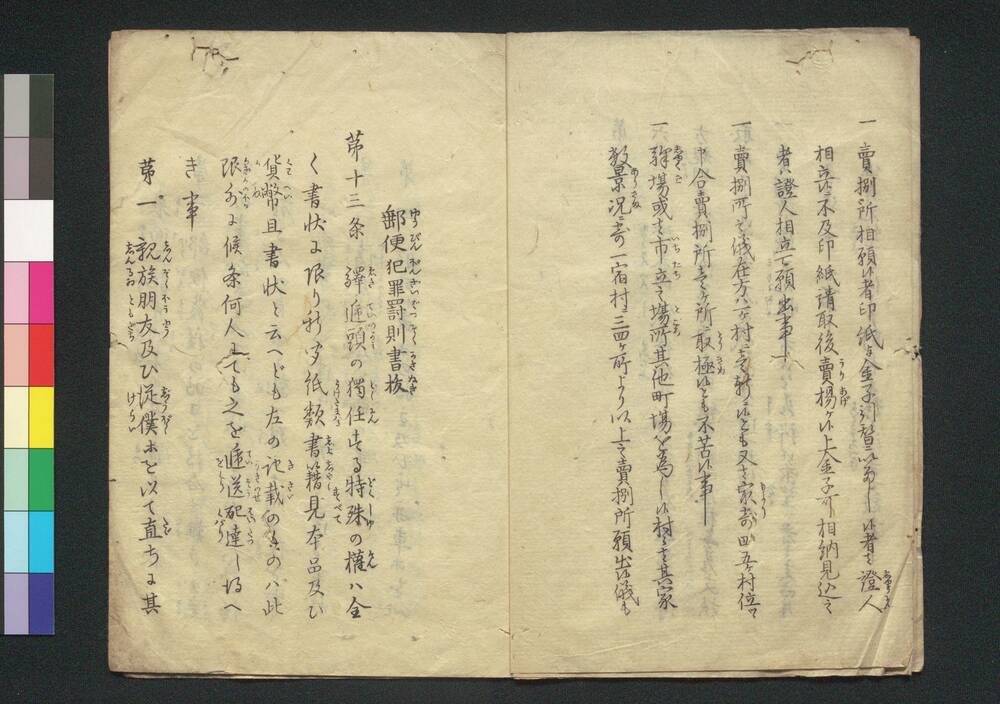 一 賣捌所相願候者印紙与金子引替ニいたし候者ハ證人
相立ニ不及印紙請取後賣揚ケ候上金子可相納見込之
者ハ證人相立可願出事
一 賣捌所之儀在方ハ一ケ村ニ壱軒ニ候とも又ハ家寄四五ケ村位ニ
申合賣捌所壱ケ所ニ取極候とも不苦候事
一 驛場或ハ市立之場所其他町場を為し候村ニハ其家
数景况ニ寄一宿村ニ三四ケ所より以上之賣捌所願出候儀も
郵便犯罪罰則書抜
第十三条 驛逓頭の獨任する特殊の權ハ全
く書状に限り新聞紙類書籍見本品及ひ
貨幣且書状と云へども左の記載のものハ此
限外に候条何人にても之を逓送配達し得へ
き事
第一 親族朋友及ひ従僕等を以て直ちに其